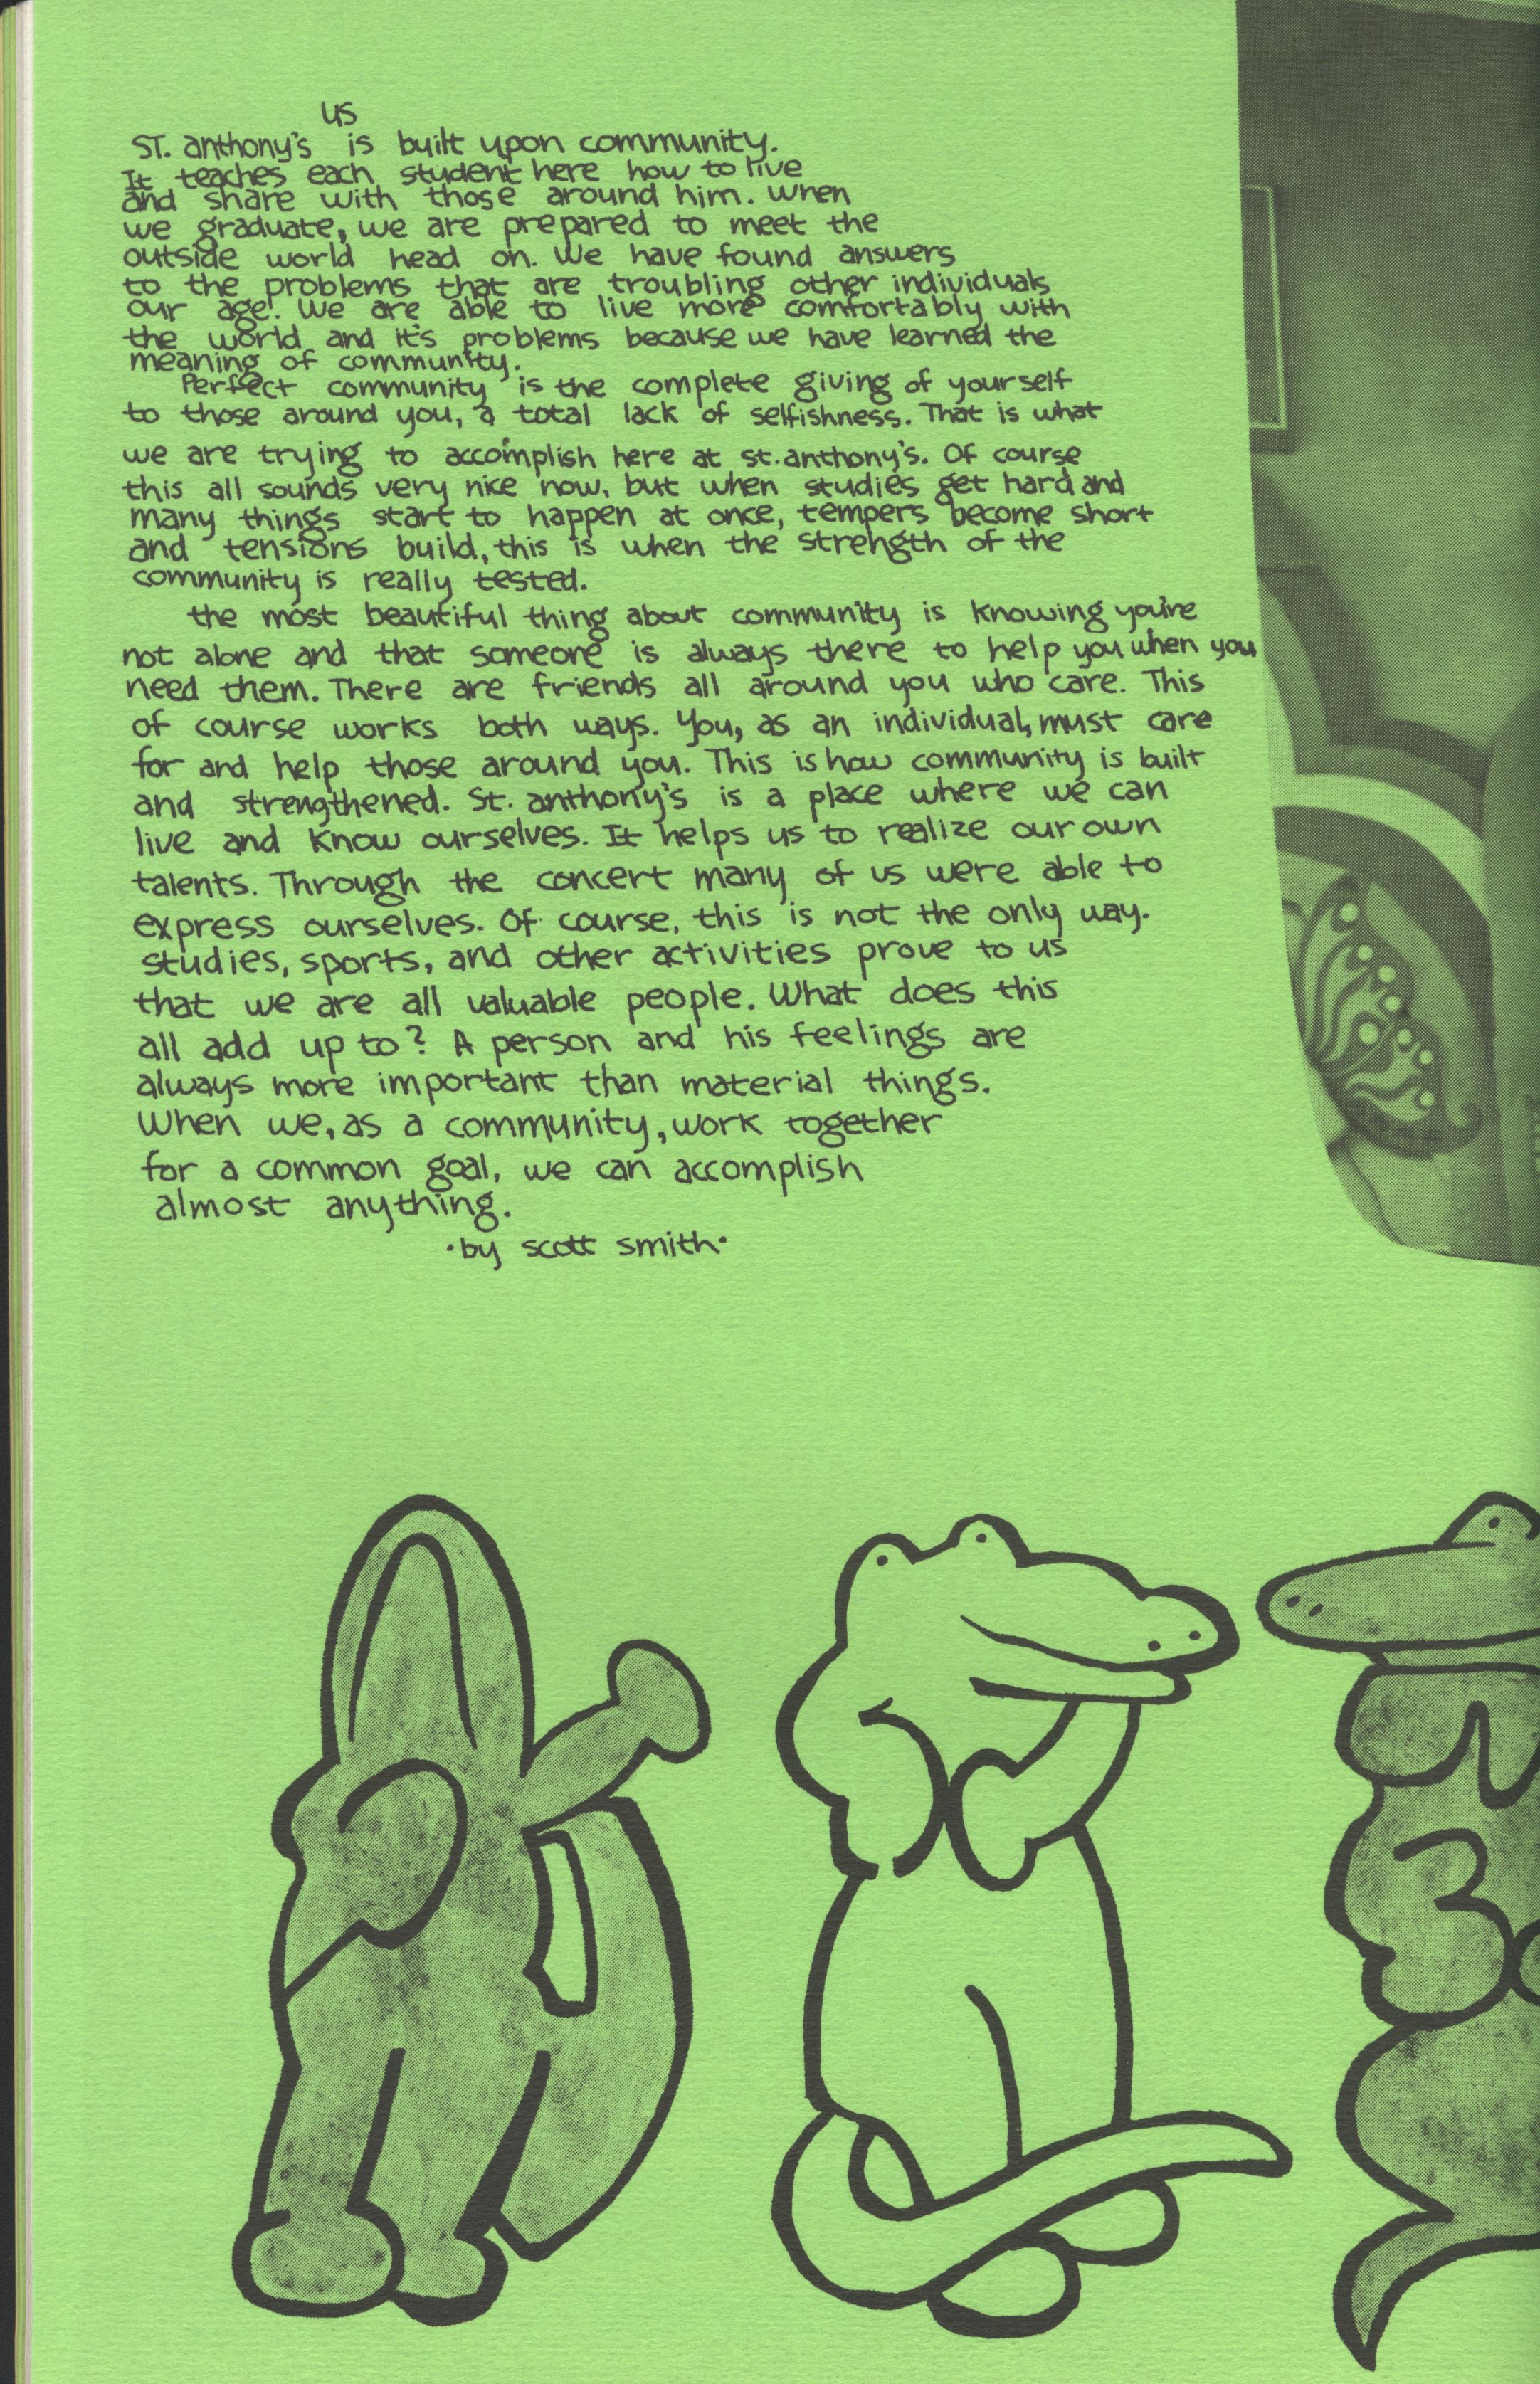 us
ST. anthony's is built upon community.
It teaches each student here how to live
and share with those around him. When
we graduate, we are prepared to meet the
outside world head on. We have found answers
to the problems that are troubling other individuals
our age! We are able to live more comfortably with
the world and it's problems because we have learned the
meaning of community.
Perfect community is the complete giving of yourself
to those around you, a total lack of selfishness. That is what
we are trying to accomplish here at st. anthony's. Of course
this all sounds very nice now, but when studies get hard and
many things start to happen at once, tempers become short
and tensions build, this is when the strength of the
community is really tested.
the most beautiful thing about community is knowing you're
not alone and that someone is always there to help you when you
need them. There are friends all around you who care. This
of course works both ways. You, as an individual, must care
for and help those around you. This is how community is built
and strengthened. St. anthony's is a place where we can
live and know ourselves. It helps us to realize our own
talents. Through the concert many of us were able to
express ourselves. Of course, this is not the only way.
studies, sports, and other activities prove to us
that we are all valuable people. What does this
all add up to? A person and his feelings are
always more important than material things.
When we, as a community, work together
for a common goal, we can accomplish
almost anything.
·by scott smith·